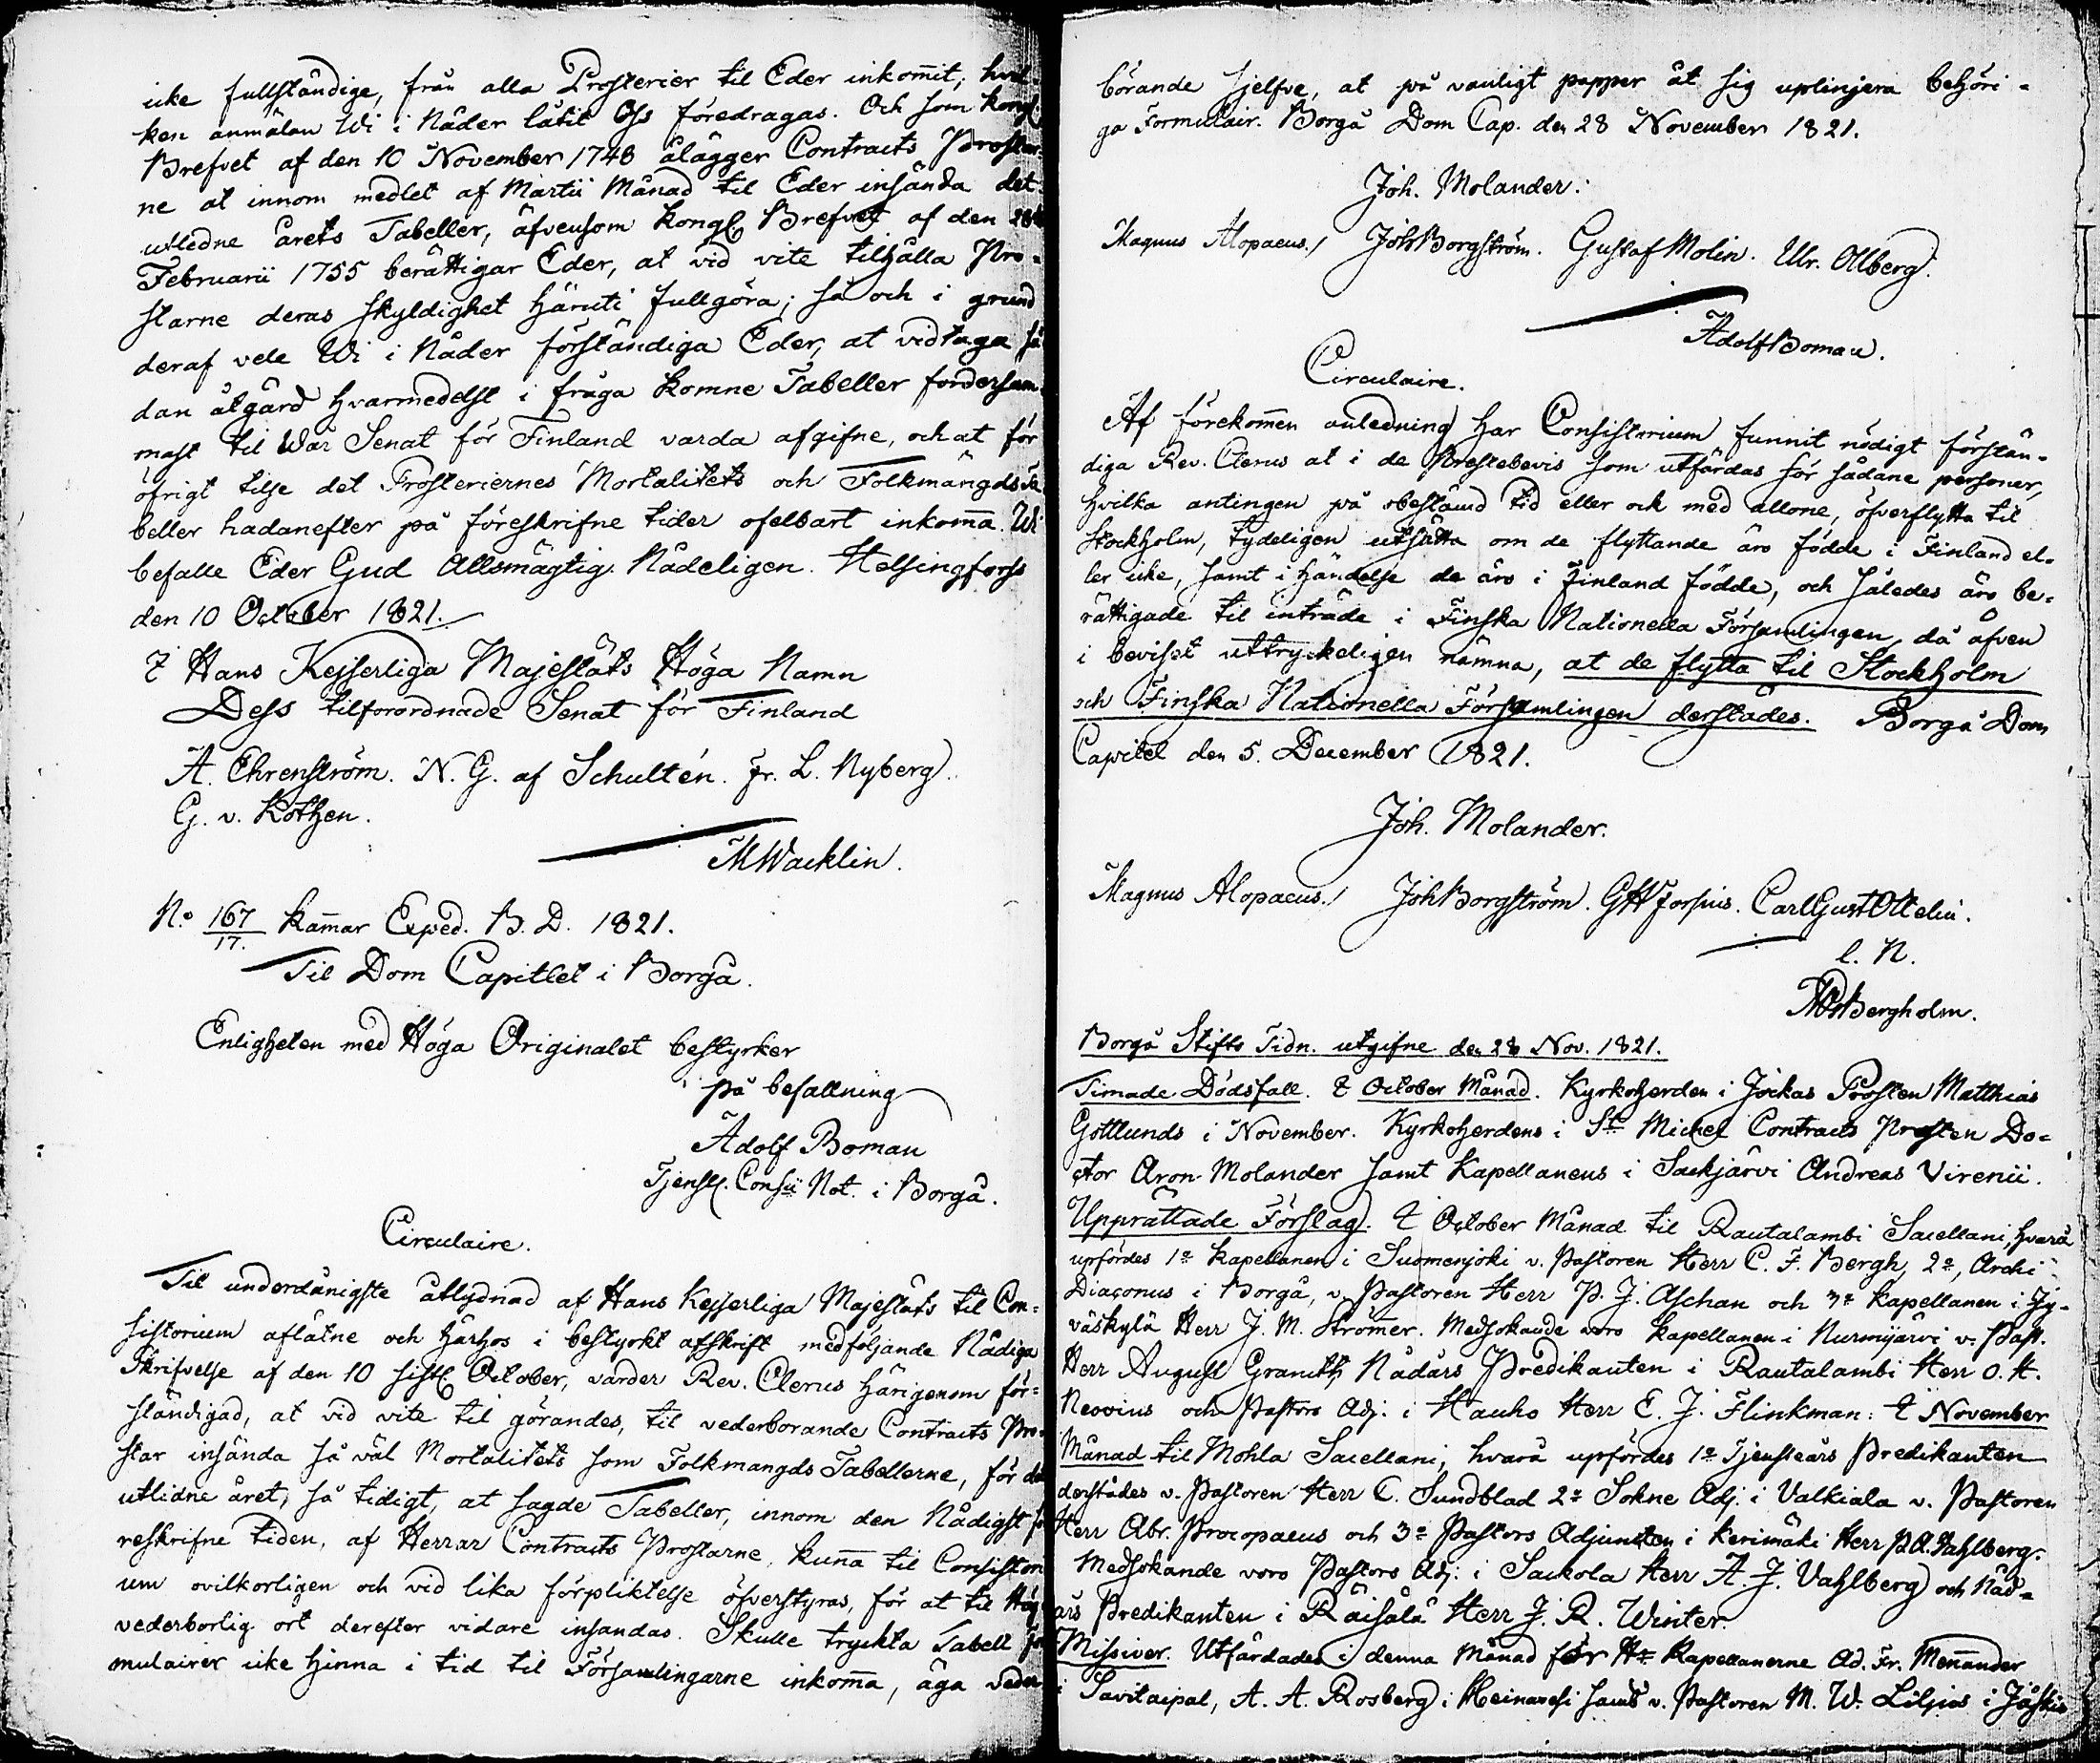 icke fullständige, från alla Prosterier til Eder inkom̄it; hvil-
ken anmälan Wi i Nåder låtit Oss föredragas. Och som Kongl.
Brefvet af den 10 November 1748 ålägger Contracts Prostar-
ne at innom medlet af Martii Månad til Eder insända det
utledne årets Tabeller, äfvensom Kongl. Brefvet af den 28
Februarii 1755 berättigar Eder, at vid vite tilhålla Pro-
starne deras skyldighet häruti fullgöra; så och i grund
deraf vele Wi i Nåder förständiga Eder, at vidtaga så-
dan åtgärd hvarmedelst i fråga komne Tabeller fordersam-
mast til Wår Senat för Finland varda afgifne, och at för
öfrigt tilse det Prosteriernes Mortalitets och Folkmängds Ta
beller hädanefter på föreskrifne tider ofelbart inkom̄a. Wi
befalle Eder Gud Allsmägtig Nådeligen. Helsingforss
den 10 October 1821.
I Hans Kejserliga Majestäts Höga Namn
Dess tilförordnade Senat för Finland
A. Ehrenström. N. G. af Schultén. Fr. L. Nyberg.
G. v. Kothen.
M Wacklin.
N:o 167/17. Kam̄ar Exped. B. D. 1821.
Til Dom Capitlet i Borgå.
Enligheten med Höga Originalet bestyrker
på befallning
Adolf Boman
Tjenstf. Consii Not. i Borgå.
Circulaire.
Til underdånigste åtlydnad af Hans Kejserliga Majestäts til Con-
sistorium aflåtne och härhos i bestyrkt afskrift medföljande Nådiga
Skrifvelse af den 10 sistl. October, varder Rev. Clerus härigenom för-
ständigad, at vid vite til görandes, til vederborande Contracts Pro-
star insända så väl Mortalitets som Folkmangds Tabellerne, för det
utlidne året, så tidigt, at sagde Tabeller, innom den Nådigst fö
reskrifne tiden, af Herrar Contracts Prostarne, kun̄a til Consistori
um ovilkorligen och vid lika förpliktelse öfverstyras, för at til Hög
vederborlig ort derefter vidare insandas. Skulle tryckta Tabell for
mulairer icke hinna i tid til Församlingarne inkom̄a, äga veder
börande sjelfve, at på vanligt papper åt sig uplinjera behöri-
ga Formulair. Borgå Dom Cap. den 28 November 1821.
Joh. Molander.
Magnus Alopaeus. Joh Borgström. Gustaf Molin. Ulr. Ollberg.
Adolf Boman.
Circulaire.
Af förekom̄en anledning har Consistorium funnit nödigt förstän-
diga Rev. Clerus at i de Prestebevis som utfärdas för sådane personer,
hvilka antingen på obestämd tid eller ock med allone, öfverflytta til
Stockholm, tydeligen utsätta om de flyttande äro födde i Finland el-
ler icke, samt i händelse de äro i Finland födde, och således äro be-
rättigade til inträde i Finska Nationella Församlingen, då äfven
i beviset uttryckeligen nämna, at de flytta til Stockholm
och Finska Nationella Församlingen derstädes. Borgå Dom
Capitel den 5. December 1821.
Joh. Molander.
Magnus Alopaeus. Joh Borgström. G H Forsius. Carl Gust Ottelin.
l. N.
Bergholm.
Borgå Stifts Tidn. utgifne den 28 Nov. 1821.
Timade Dödsfall. I October Månad. Kyrkoherden i Jockas Prosten Matthias
Gottlunds i November. Kyrkoherdens i St Michel Contracts Prosten Do-
ctor Aron Molander samt Kapellanens i Säckjärvi Andreas Virenii.
Upprättade Förslag. I October Månad til Rautalambi Sacellani, hvarå
upfördes 1o Kapellanen i Suomenjoki v. Pastoren Herr C. F. Bergh, 2o, Archi
Diaconus i Borgå, v. Pastoren Herr P. J. Aschan och 3o Kapellanen i Jy-
väskylä Herr J. M. Ströⅿer. Medsokande voro Kapellanen i Nurmijärvi v. Past.
Herr August Granith, Nådårs Predikanten i Rautalambi Herr O. H.
Neovius och Pastors Adj. i Hauho Herr E. J. Flinkman: I November
Månad til Mohla Sacellani, hvarå upfördes 1o Tjensteårs Predikanten
derstädes v. Pastoren Herr C. Sundblad 2o Sokne Adj. i Valkiala v. Pastoren
Herr Abr. Procopaeus och 3o Pastors Adjuncten i Kerimäki Herr P. A. Vahlberg.
Medsokande voro Pastors Adj. i Sackola Herr A. J. Vahlberg och Nåd-
års Predikanten i Räisälä Herr J. R. Winter.
Missiver. Utfärdades i denna Månad för Hr Kapellanerne Ad. Fr. Men̄ander
i Savitaipal, A. A. Rosberg i Heinavesi samt v. Pastoren M. W. Lilius i Jäskis